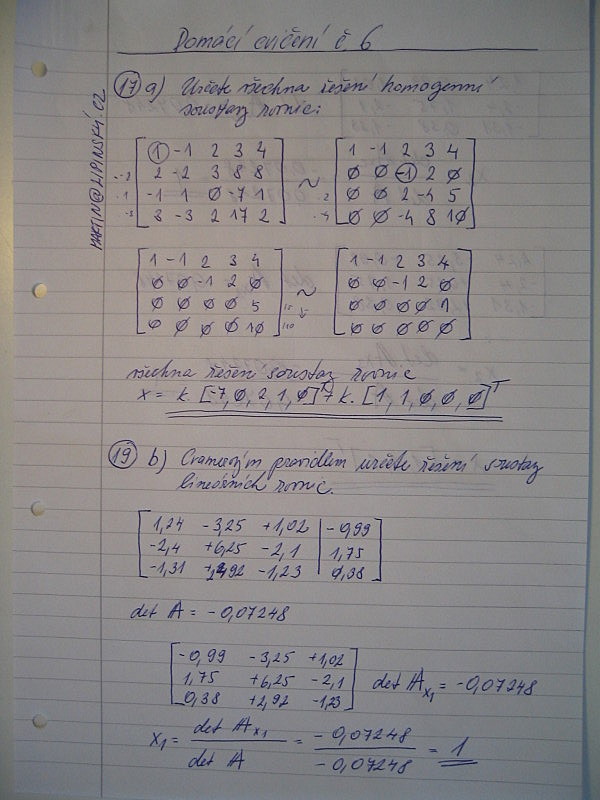 Domácí cvičení č. 6
MARTIN@LIPINSKÝ.CZ
17 a) Určete všechna řešení homogenní
soustavy rovnic:
1 -1 2 3 4
2 -2 3 8 8
-1 1 0 -7 1
3 -3 2 17 2
~
1 -1 2 3 4
0 0 -1 2 0
0 0 2 -4 5
0 0 -4 8 10
1 -1 2 3 4
0 0 -1 2 0
0 0 0 0 5
0 0 0 0 10
~
1 -1 2 3 4
0 0 -1 2 0
0 0 0 0 1
0 0 0 0 0
všechna řešení soustavy rovnic
x = k. [-7, 0, 2, 1, 0]T + k. [1, 1, 0, 0, 0]T
19 b) Cramerovým pravidlem určete řešení soustavy
lineárních rovnic.
1,24 -3,25 +1,02 | -0,99
-2,4 +6,25 -2,1 | 1,75
-1,31 +2,92 -1,23 | 0,38
det A = -0,07248
-0,99 -3,25 +1,02
1,75 +6,25 -2,1
0,38 +2,92 -1,23
det Ax1 = -0,07248
x1 = det Ax1 / det A = -0,07248 / -0,07248 = 1